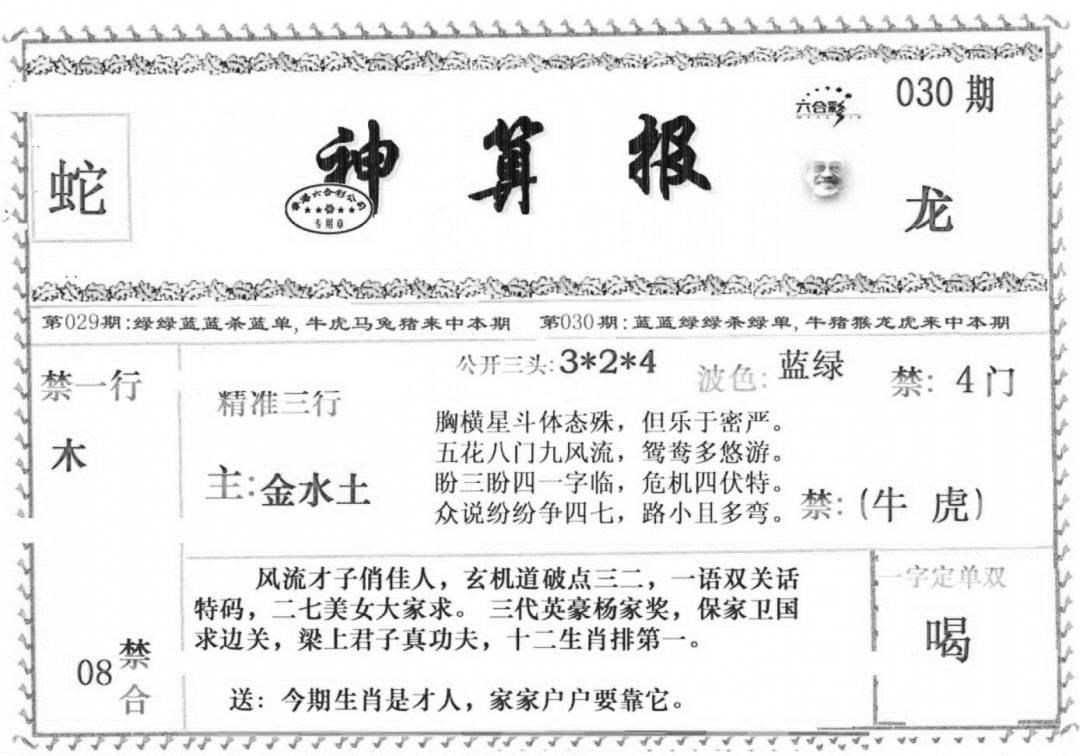 030期
六合彩
蛇
神算报
香港六合彩公司
专用章
龙
第029期:绿绿蓝蓝杀蓝单,牛虎马兔猪来中本期 第030期:蓝蓝绿绿杀绿单,牛猪猴龙虎来中本期
公开三头:3*2*4 波色:蓝绿 禁:4门
禁一行
木
精准三行
主:金水土
胸横星斗体态殊，但乐于密严。
五花八门九风流，鸳鸯多悠游。
盼三盼四一字临，危机四伏特。
众说纷纷争四七，路小且多弯。
禁:(牛 虎)
风流才子俏佳人，玄机道破点三二，一语双关话
特码，二七美女大家求。三代英豪杨家奖，保家卫国
求边关，梁上君子真功夫，十二生肖排第一。
送：今期生肖是才人，家家户户要靠它。
一字定单双
喝
08禁
合